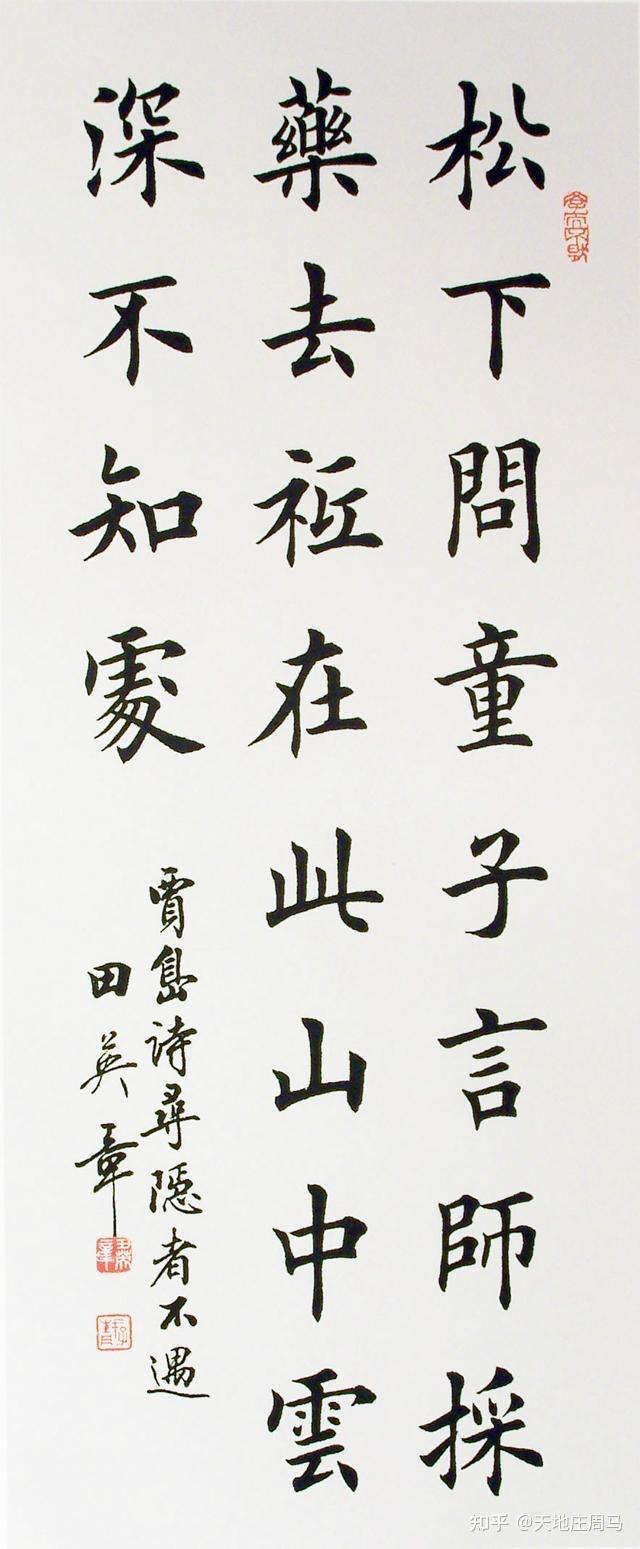 松下問童子言師採
藥去祇在此山中雲
深不知處
賈島詩尋隱者不遇
田英章
知乎 @天地庄周马